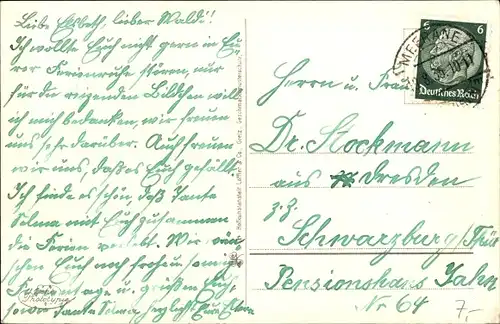 Liebe Elsbeth, lieber Waldi!
Ich wollte Euch nicht gern in Eu-
rer Ferienruhe stören, nur
für die reizenden Bildchen will
ich mich bedanken, wir freuen
uns sehr darüber. Auch freuen
wir uns, daß es Euch gefällt.
Ich finde es schön, daß Tante
Selma mit Euch zusammen
die Ferien verlebt. Wir wün-
schen Euch noch frohe
Ferientage u. grüßen Euch,
Tante Selma herzlichst Eure Eltern
Phototypie
MEERANE
6 6
Deutsches Reich
Herrn u. Frau
Dr. Stockmann
aus Dresden
z. Z.
Schwarzburg/Thür
Pensionshaus Jahn
Nr 64
7,-